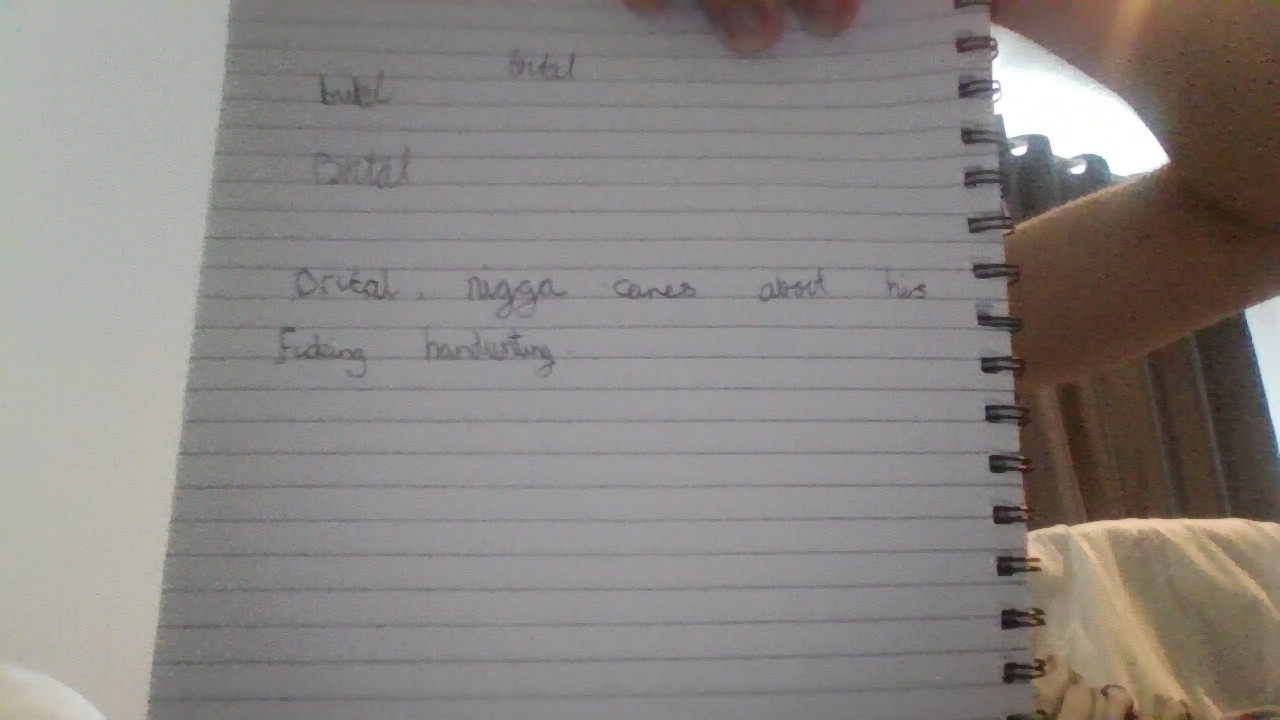 brutal
brutal
Brutal
Brutal. nigga cares about his
Fucking handwriting.